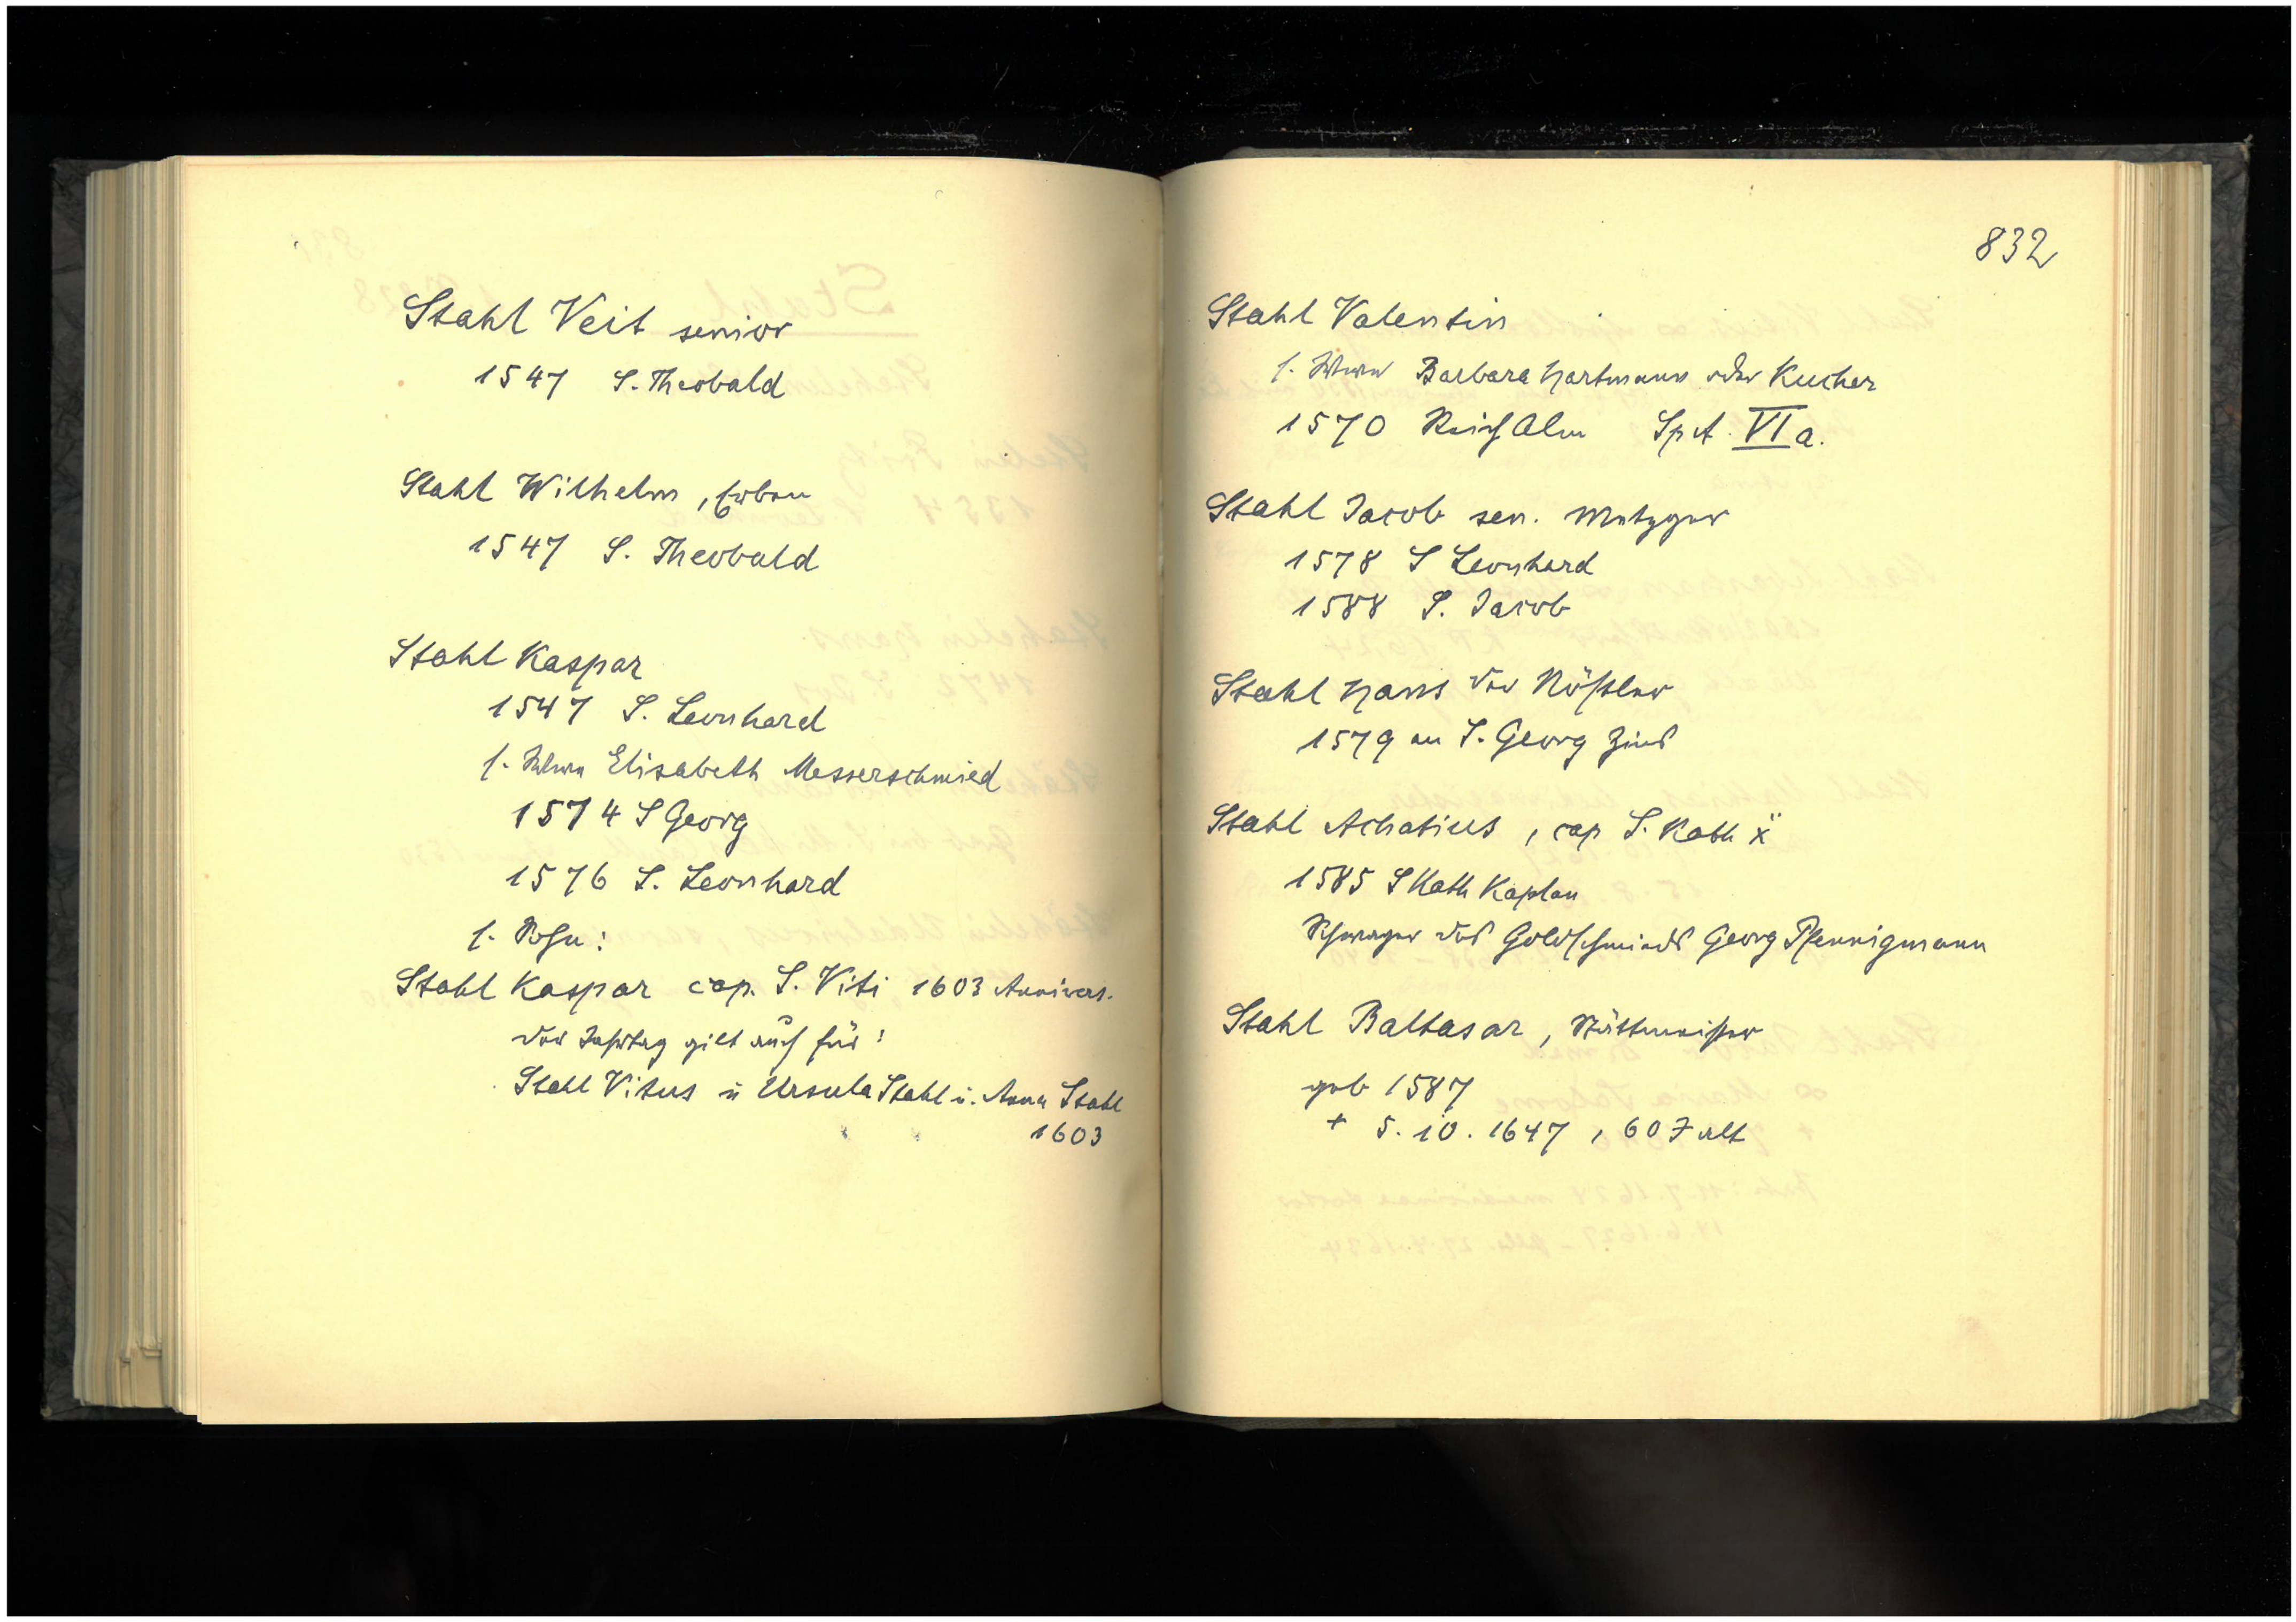 Stahl Veit senior
1547 S. Theobald
Stahl Wilhelm, Erben
1547 S. Theobald
Stahl Kaspar
1547 S. Leonhard
s. Witwe Elisabeth Messerschmied
1574 S Georg
1576 S. Leonhard
s. Sohn:
Stahl Kaspar cap. S. Viti 1603 Annivers.
der Jahrtag gilt auch für:
Stahl Vitus u Ursula Stahl u. Anna Stahl
1603
832
Stahl Valentin
s. Witwe Barbara Hartmann oder Kucher
1570 Reich Alm Sp A. VI a.
Stahl Jacob sen. Metzger
1578 S Leonhard
1588 S. Jacob
Stahl Hans der Rößler
1579 an S. Georg Zins
Stahl Achatius, cap S. Kath
1585 S Kath Kaplan
Schwager des Goldschmieds Georg Pfennigmann
Stahl Baltasar, Stättmeister
geb 1587
+ 5.10.1647, 60 J alt